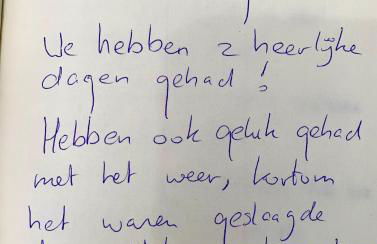 We hebben 2 heerlijke
dagen gehad !
Hebben ook geluk gehad
met het weer, kortom
het waren geslaagde